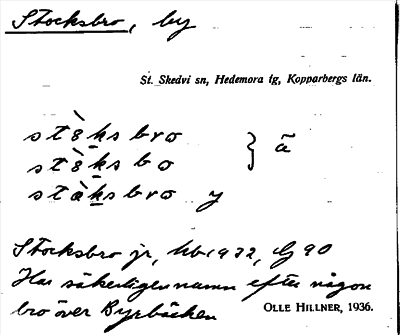 Stocksbro, by
St. Skedvi sn, Hedemora tg, Kopparbergs län.
stòksbro } ã
stòksbo
stàksbro y
Stocksbro jr, hbl 1932, Lg 90
Har säkerligen namn efter någon
bro över Byrbäcken
OLLE HILLNER, 1936.